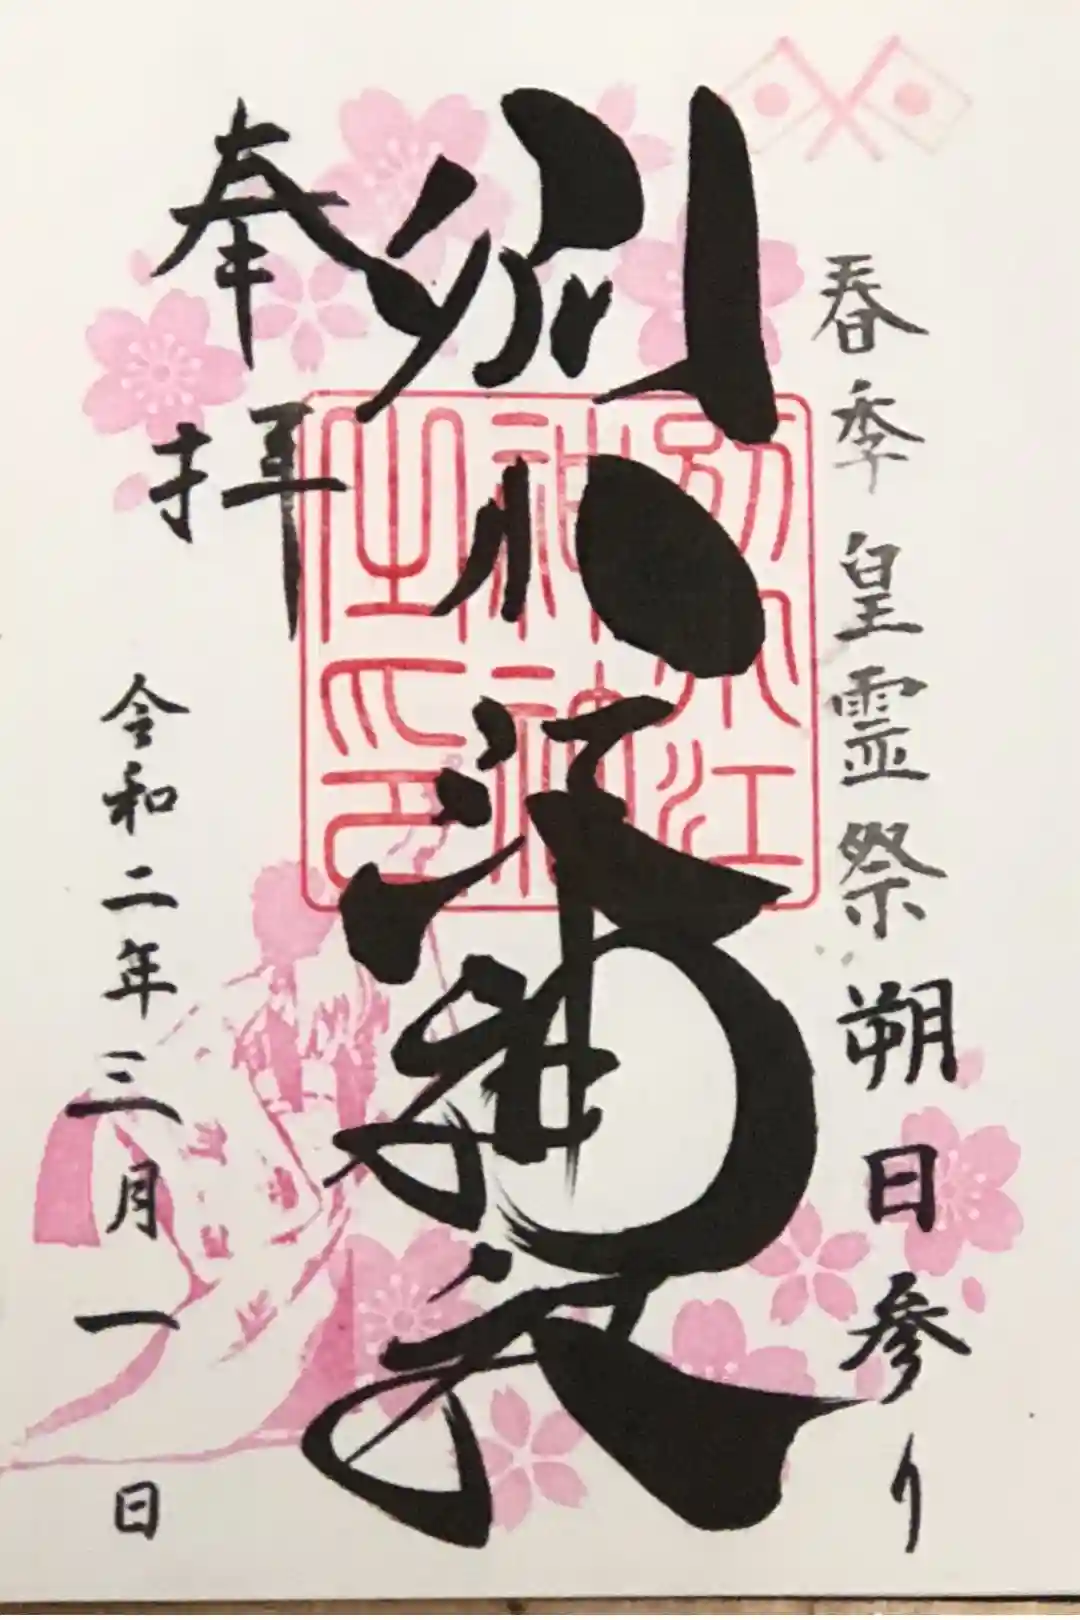 春季皇霊祭 朔日参り
別小江神社
奉拝
令和二年三月一日
別小江
神
之印